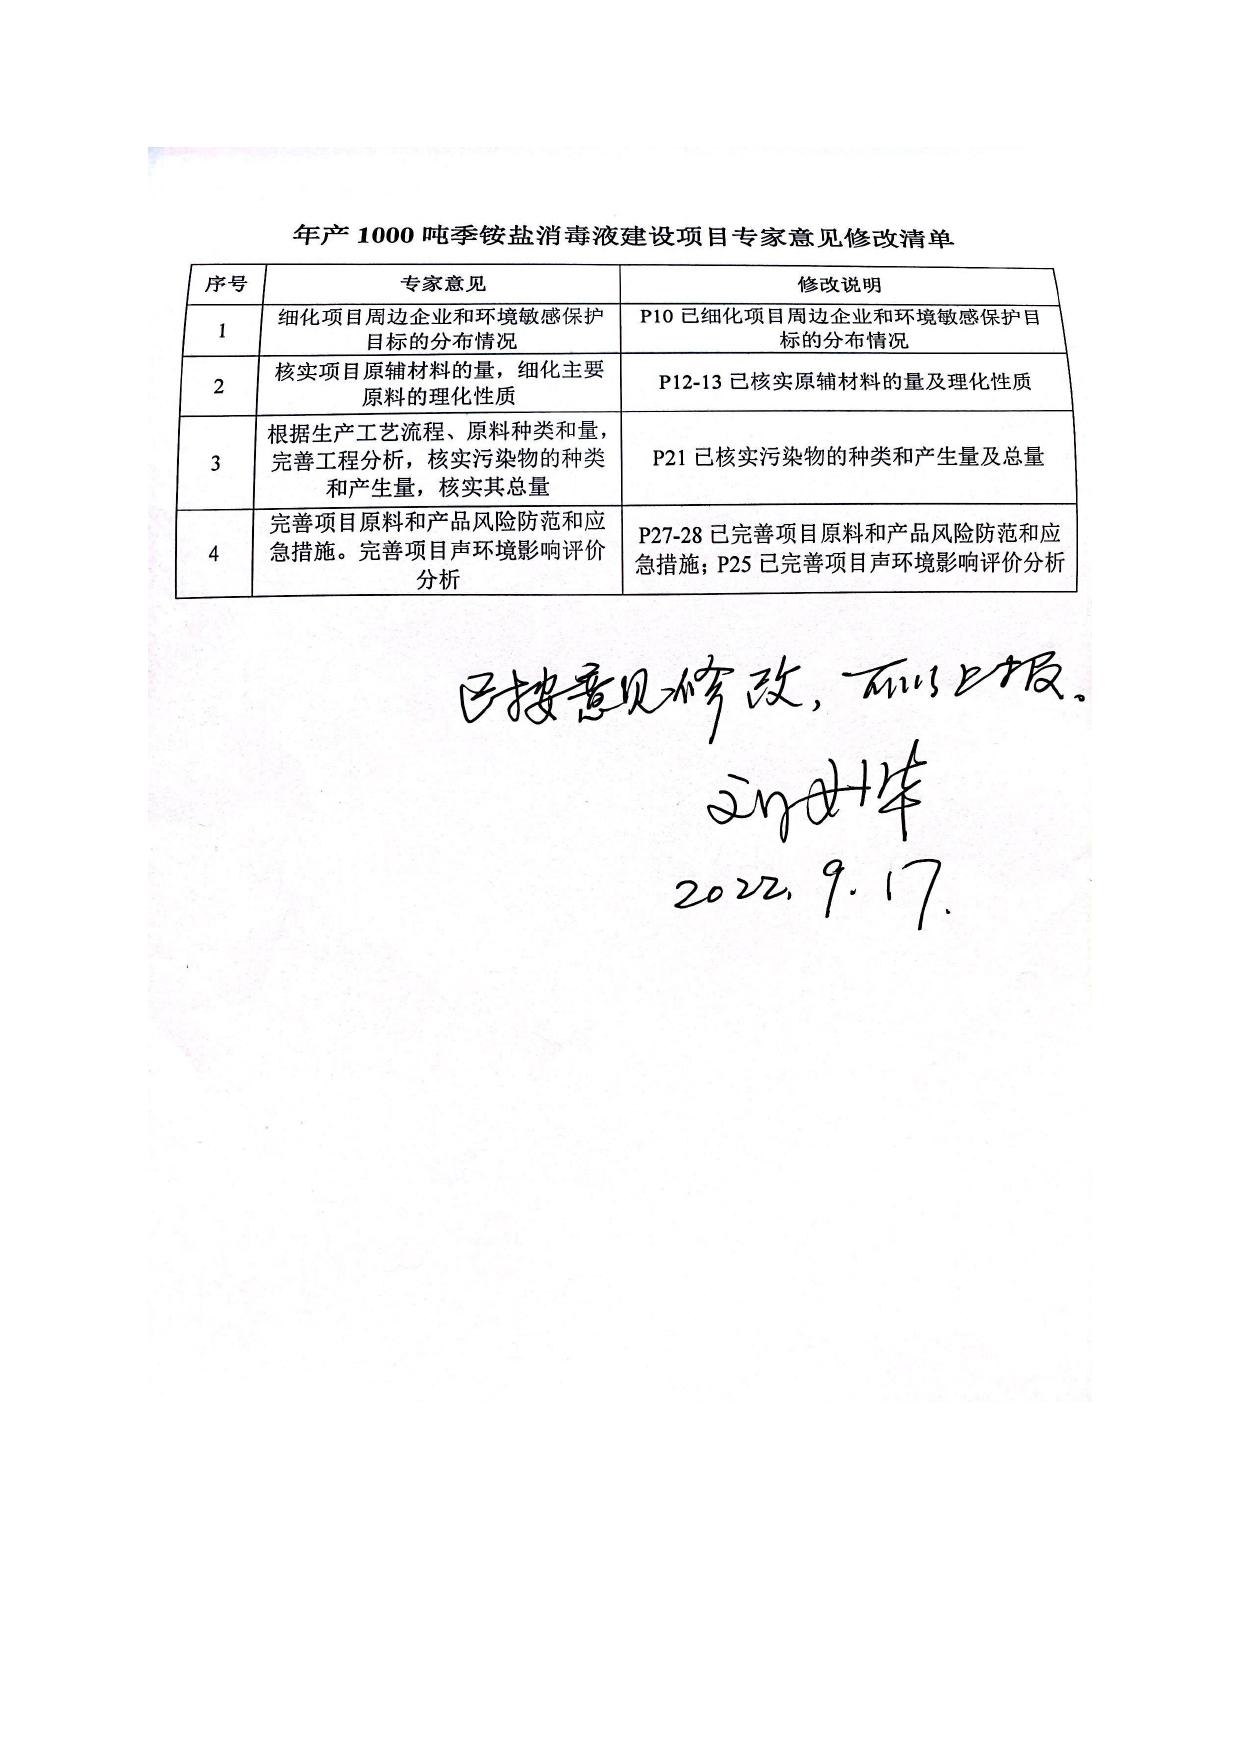 年产 1000 吨季铵盐消毒液建设项目专家意见修改清单
序号 专家意见 修改说明
1 细化项目周边企业和环境敏感保护
目标的分布情况
P10 已细化项目周边企业和环境敏感保护目
标的分布情况
2 核实项目原辅材料的量，细化主要
原料的理化性质
P12-13 已核实原辅材料的量及理化性质
3 根据生产工艺流程、原料种类和量，
完善工程分析，核实污染物的种类
和产生量，核实其总量
P21 已核实污染物的种类和产生量及总量
4 完善项目原料和产品风险防范和应
急措施。完善项目声环境影响评价
分析
P27-28 已完善项目原料和产品风险防范和应
急措施；P25 已完善项目声环境影响评价分析
已按意见修改，可以上报。
2022. 9. 17.